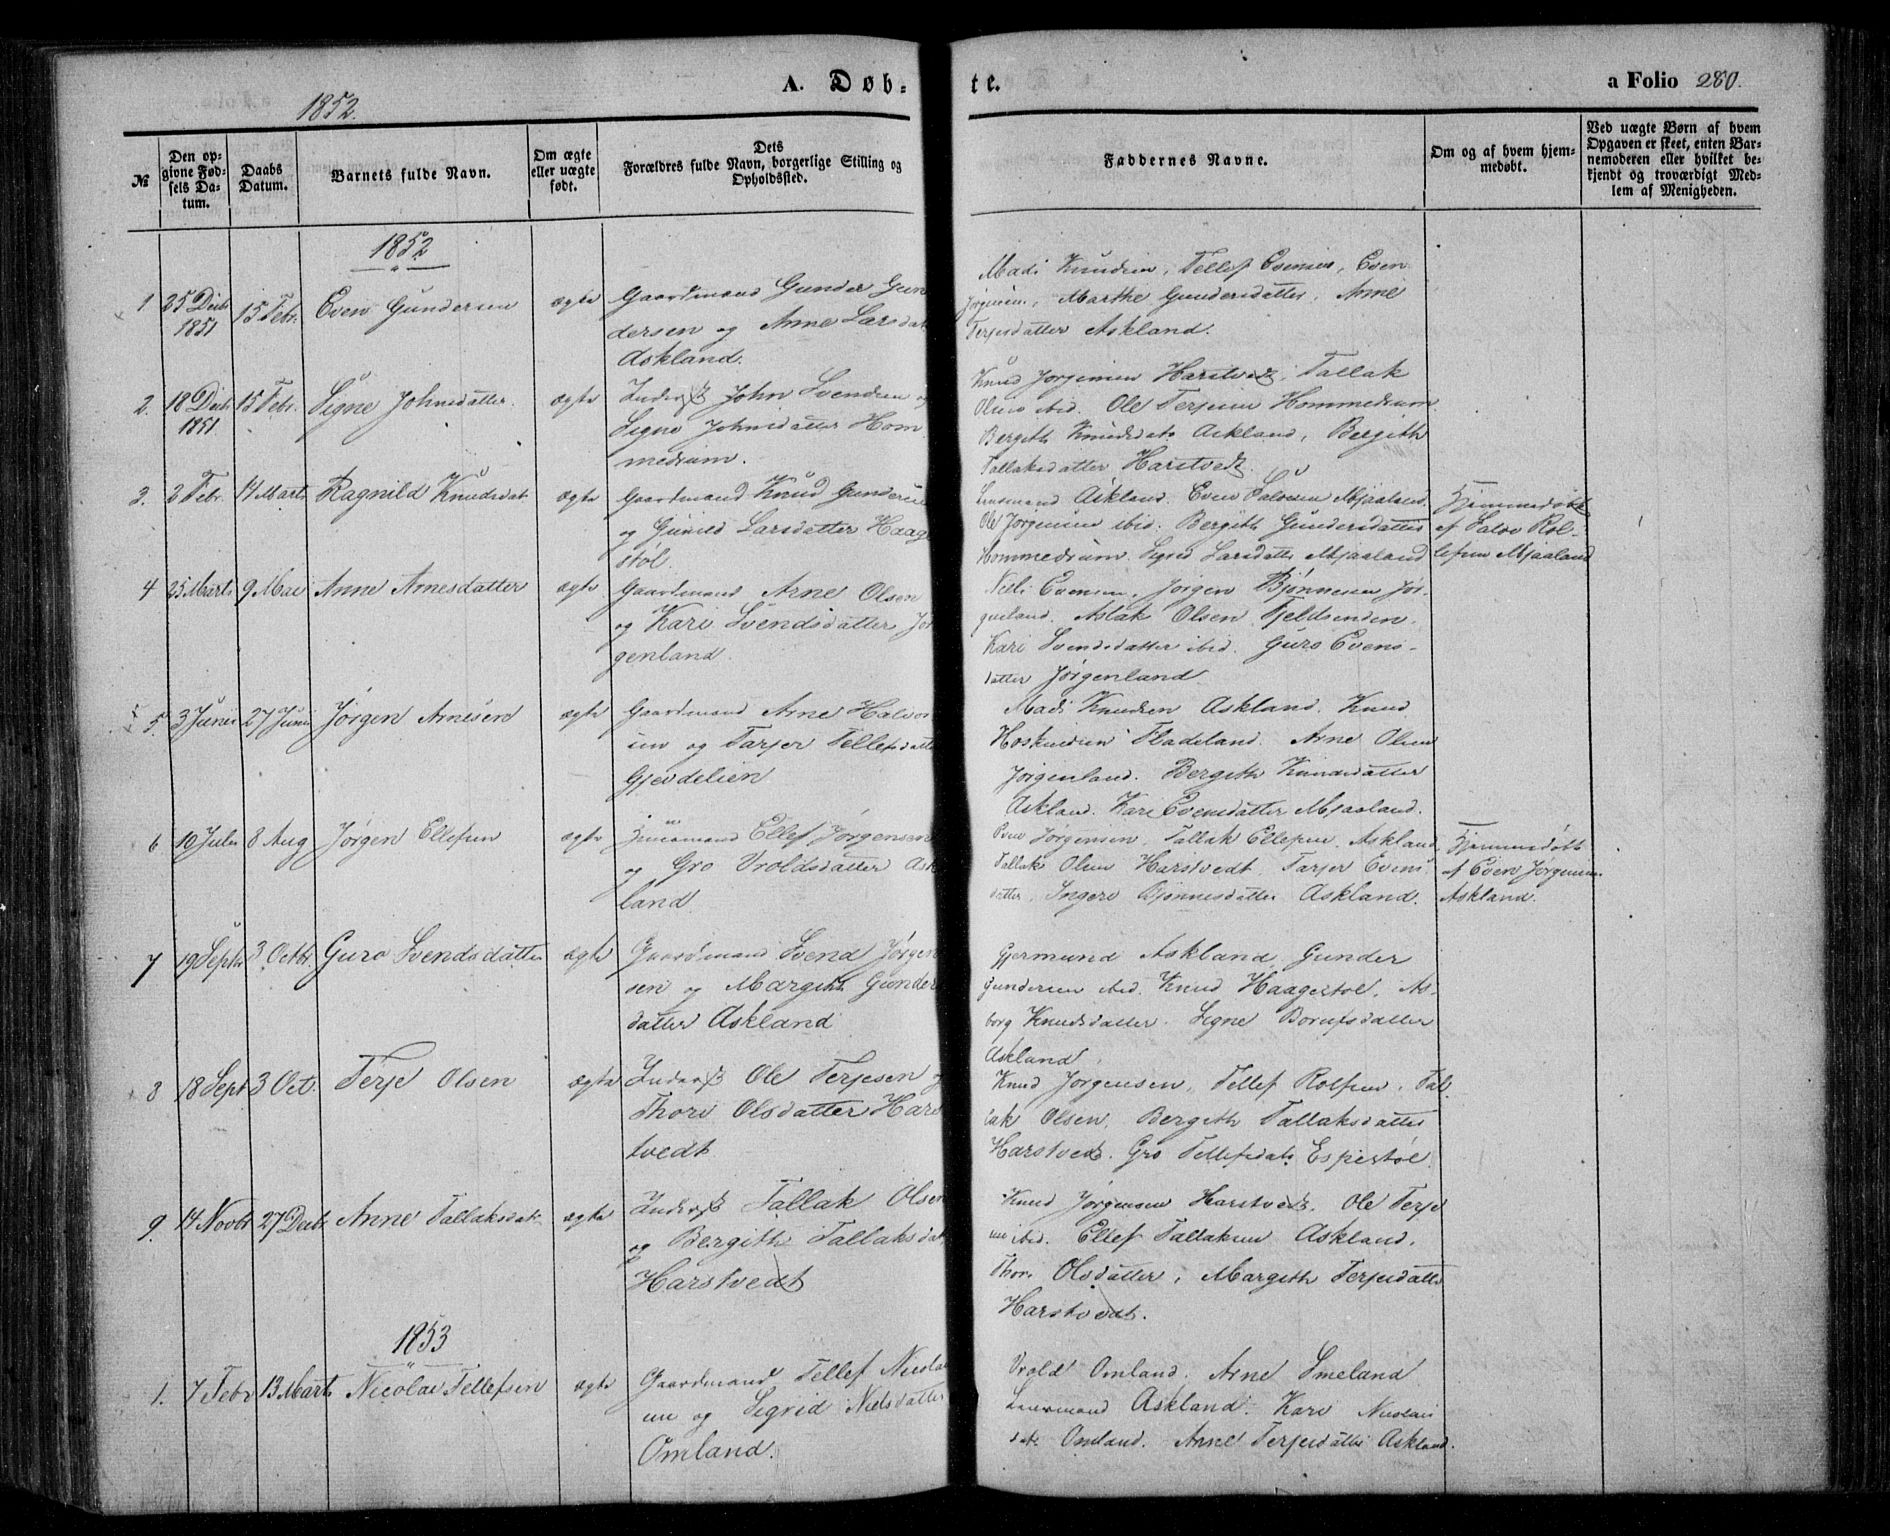 1852.
A. Døb-
te.
a Folio 280.
№
Den op-
givne Fød-
sels Da-
tum.
Daabs
Datum.
Barnets fulde Navn.
Om ægte
eller uægte
født.
Dets
Forældres fulde Navn, borgerlige Stilling og
Opholdssted.
Faddernes Navne.
Om og af hvem hjem-
medøbt.
Ved uægte Børn af hvem
Opgaven er skeet, enten Bar-
nemoderen eller hvilket be-
kjendt og troværdigt Med-
lem af Menigheden.
1852
1
25 Decbr
1851
15 Febr.
Even Gundersen
ægte
Gaardmand Gunder Gun
dersen og Anne Larsdat
Askland.
Mads Knudsen, Tellef Evensen, Even
Jørgensen, Marthe Gundersdatter, Anne
Terjesdatter Askland.
2.
18 Decbr
1851
15 Febr.
Signe Johnsdatter.
ægte
Inderst John Svendsen og
Signe Johnsdatter Hom
medrum.
Knud Jorgensen Harstvedt, Tallak
Olsen ibid. Ole Terjesen Hommedrum
Bergith Knudsdatr Askland, Bergith
Tallaksdatter Harstvedt.
3.
2 Febr.
14 Marts
Ragnild Knudsdat
ægte
Gaardmand Knud Gundersen
og Gunild Larsdatter Haage
støl.
Lensmand Askland. Even Salvesen Mjaaland.
Ole Jorgensen ibid. Bergith Gundersdatter
Hommedrum. Sigrid Larsdattr Mjaaland
Hjemmedøbt
af Salve Rol-
lefsen Mjaaland
4
25 Marts
9 Mai
Anne Arnesdatter
ægte
Gaardmand Arne Olsen
og Kari Svendsdatter Jør
genland.
Niels Evensen, Jørgen Bjønnesen Jør-
genland. Aslak Olsen Fjeldsenden.
Kari Svendsdatter ibid. Guro Evens-
datter Jørgenland
5.
3 Junii
27 Junii
Jørgen Arnesen
ægte
Gaardmand Arne Halvor
sen og Tarjer Tellefsdatte
Gjevdelien
Mads Knudsen Askland. Knud
Fladeland. Arne Olsen
Jørgenland. Bergith Knudsdatter
Askland. Kari Evensdatter Mjaaland.
6
10 Julii
8 Aug
Jørgen Ellefsen
ægte
Huusmand Ellef Jørgensen
og Gro Vroldsdatter Ask
land.
Even Jørgensen, Tallak Ellefsen. Askland
Tallak Olsen Harstvedt. Tarjer Evens
datter, Ingere Bjønnesdatter Askland.
Hjemmedøbt
af Even Jørgensen
Askland.
7
19 Septr
3 Octbr
Guro Svendsdatter
ægte
Gaardmand Svend Jørgen
sen og Margith Gunder
datter Askland
Gjermund Askland Gunder
Gundersen ibid. Knud Haagestøl, As-
borg Knudsdatter. Signe Borufsdatter
Askland.
8
18 Sept
3 Oct.
Terje Olsen
ægte
Inderst Ole Terjesen og
Thore Olsdatter Hars
tvedt
Knud Jørgensen, Tellef Rolfsen, Tal
lak Olsen, Bergith Tallaksdatter
Harstvedt. Gro Tellefsdatr Espestøl.
9.
14 Novbr
27 Decbr
Anne Tallaksdatr
ægte
Inderst Tallak Olsen
og Bergith Tallaksdat
Harstvedt
Knud Jørgensen Harstvedt. Ole Terje
sen ibid. Ellef Tallaksen Askland.
Thore Olsdatter, Margith Terjesdatter
Harstvedt.
1853
1.
7 Febr
13 Marts
Nicolai Tellefsen
ægte
Gaardmand Tellef Nicolai
sen og Sigrid Nielsdatter
Omland.
Vrold Omland. Arne Smeland
Lensmand Askland. Kari Nicolais
datr Omland. Anne Terjesdatter Askland.